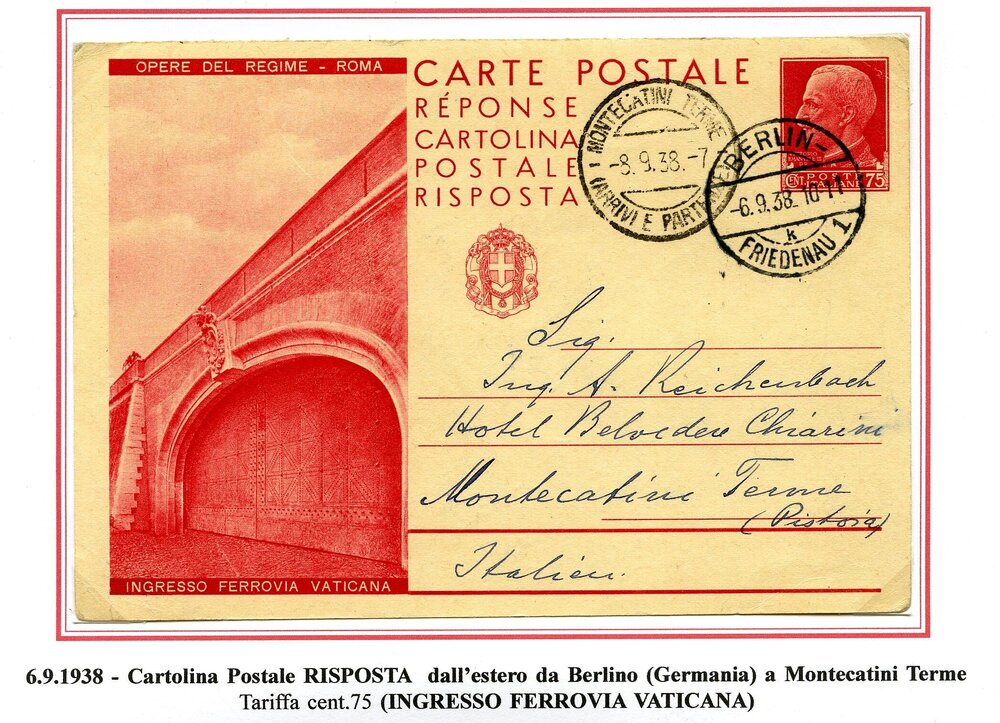 OPERE DEL REGIME - ROMA
CARTE POSTALE
RÉPONSE
CARTOLINA
POSTALE
RISPOSTA
MONTECATINI TERME
-8.9.38.-7
(ARRIVI E PARTENZE)
BERLIN-
-6.9.38. 10-11
k
FRIEDENAU 1
POSTE
ITALIANE
CENT 75
Sig.
Ing. A. Reichenbach
Hotel Belvedere Chiarini
Montecatini Terme
(Pistoia)
Italien.
INGRESSO FERROVIA VATICANA
6.9.1938 - Cartolina Postale RISPOSTA dall'estero da Berlino (Germania) a Montecatini Terme
Tariffa cent.75 (INGRESSO FERROVIA VATICANA)